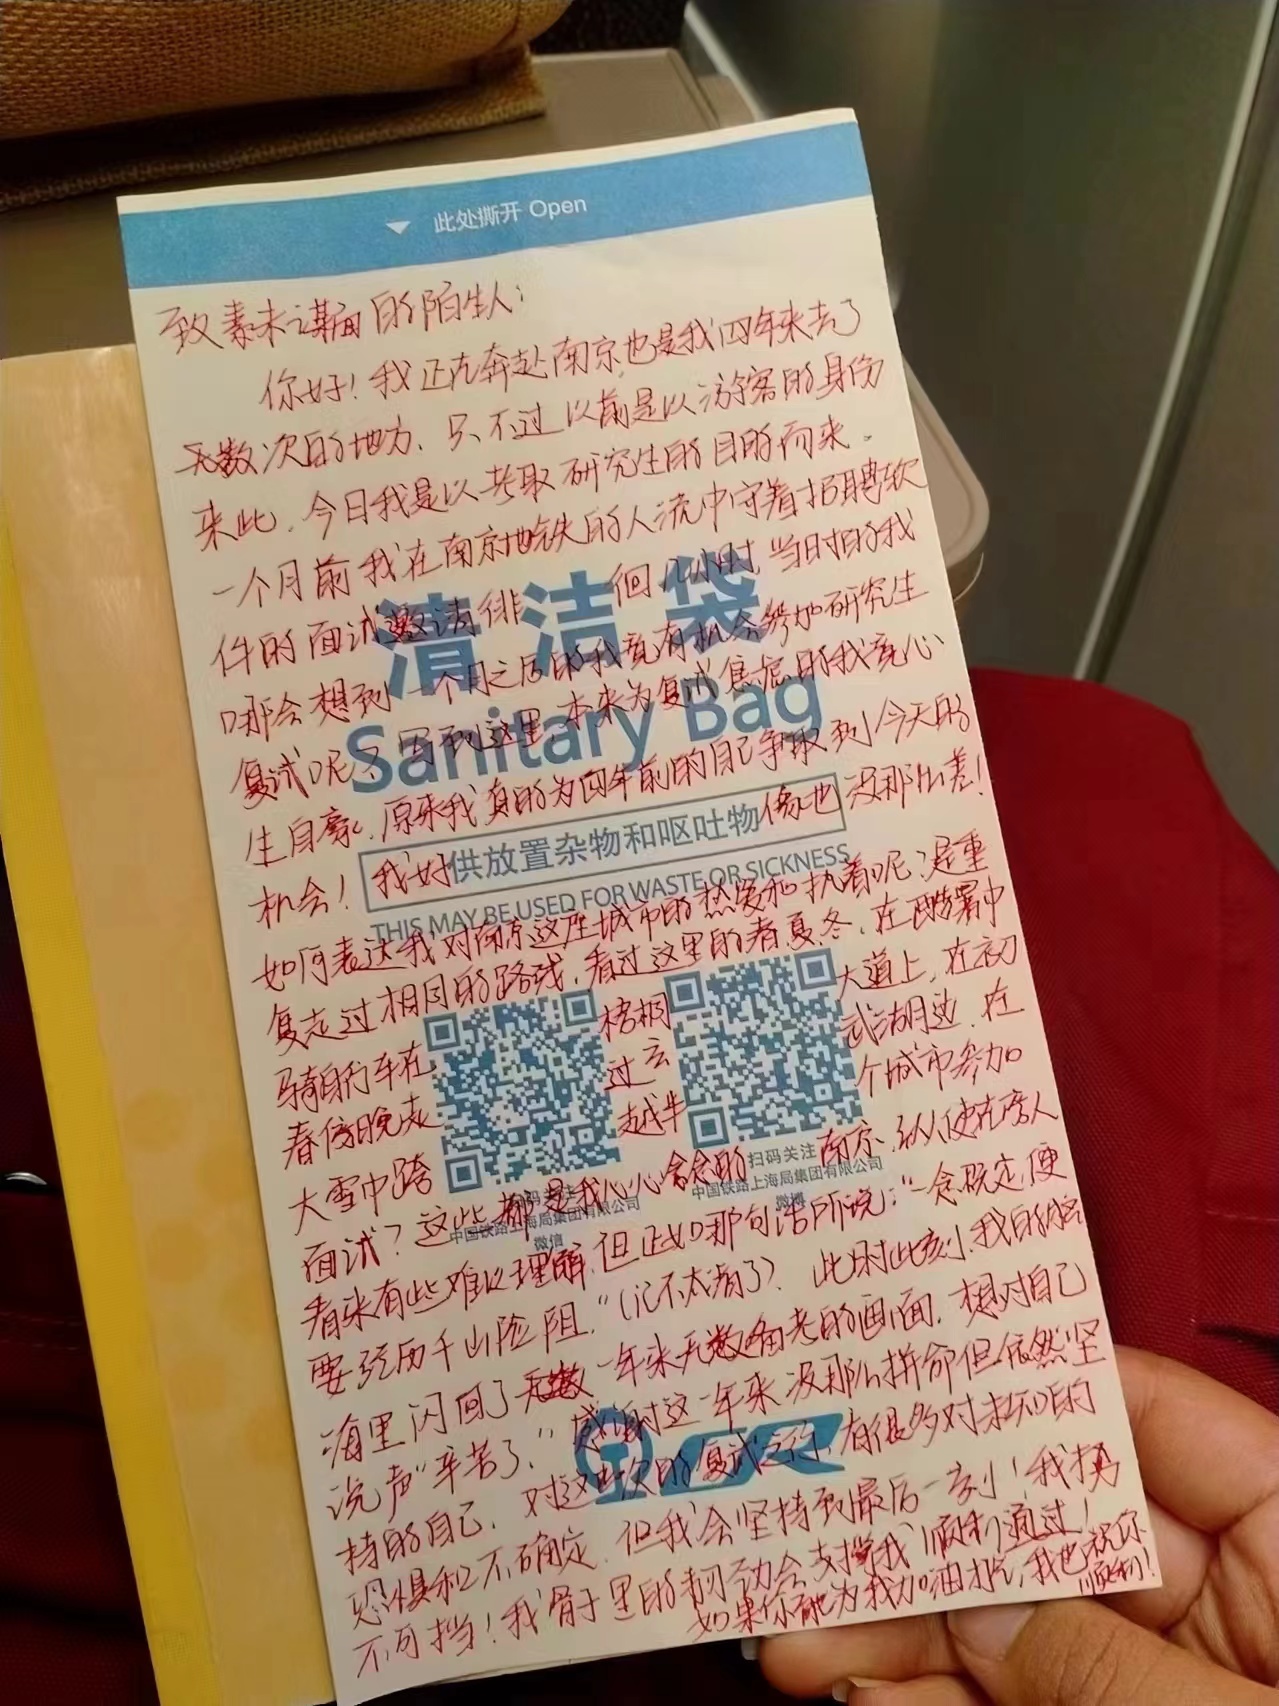 此处撕开 Open
致素未谋面的陌生人：
你好！我正在奔赴南京也是我四年来去了
无数次的地方，只不过以前是以游客的身份
来此，今日我是以考取研究生的目的而来。
一个月前我在南京地铁的人流中守着招聘软
件的面试邀请徘徊几小时，当时的我
清洁袋
哪会想到一个月之后的我竟有机会参加研究生
Sanitary Bag
复试呢？写到这里，本来为复试焦虑的我竟心
生自豪，原来我真的为四年前的自己争取到今天的
机会！我好像也没那么差！
供放置杂物和呕吐物
THIS MAY BE USED FOR WASTE OR SICKNESS
如何表达我对南京这座城市的热爱和执着呢？是重
复走过相同的路线，看过这里的春夏冬，在酷暑中
骑自行车在梧桐大道上，在初
春傍晚走过玄武湖月边，在
大雪中跨越半个城市参加
面试？这些都是我心心念念的南京，纵使在旁人
扫码关注
中国铁路上海局集团有限公司
微信
扫码关注
中国铁路上海局集团有限公司
微博
看来有些难以理解，但正如那句话所说："一念既定，便
要经历千山险阻，"（记不太清了？ 此时此刻，我的脑
海里闪回了无数一年来无数备考的画面，想对自己
说声"辛苦了，"感谢这一年来没那么拼命但依然坚
持的自己，对这次的复试之行，有很多对未知的
恐惧和不确定，但我会坚持到最后一刻！我势
不可挡！我骨子里的韧劲会支撑我顺利通过！
如果你能为我加油打气，我也祝你
顺利！